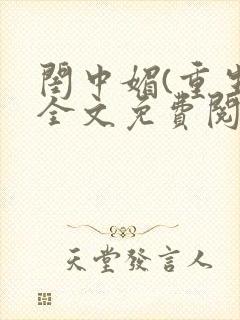 閨中媚(重生
全文免費閱
天堂發言人